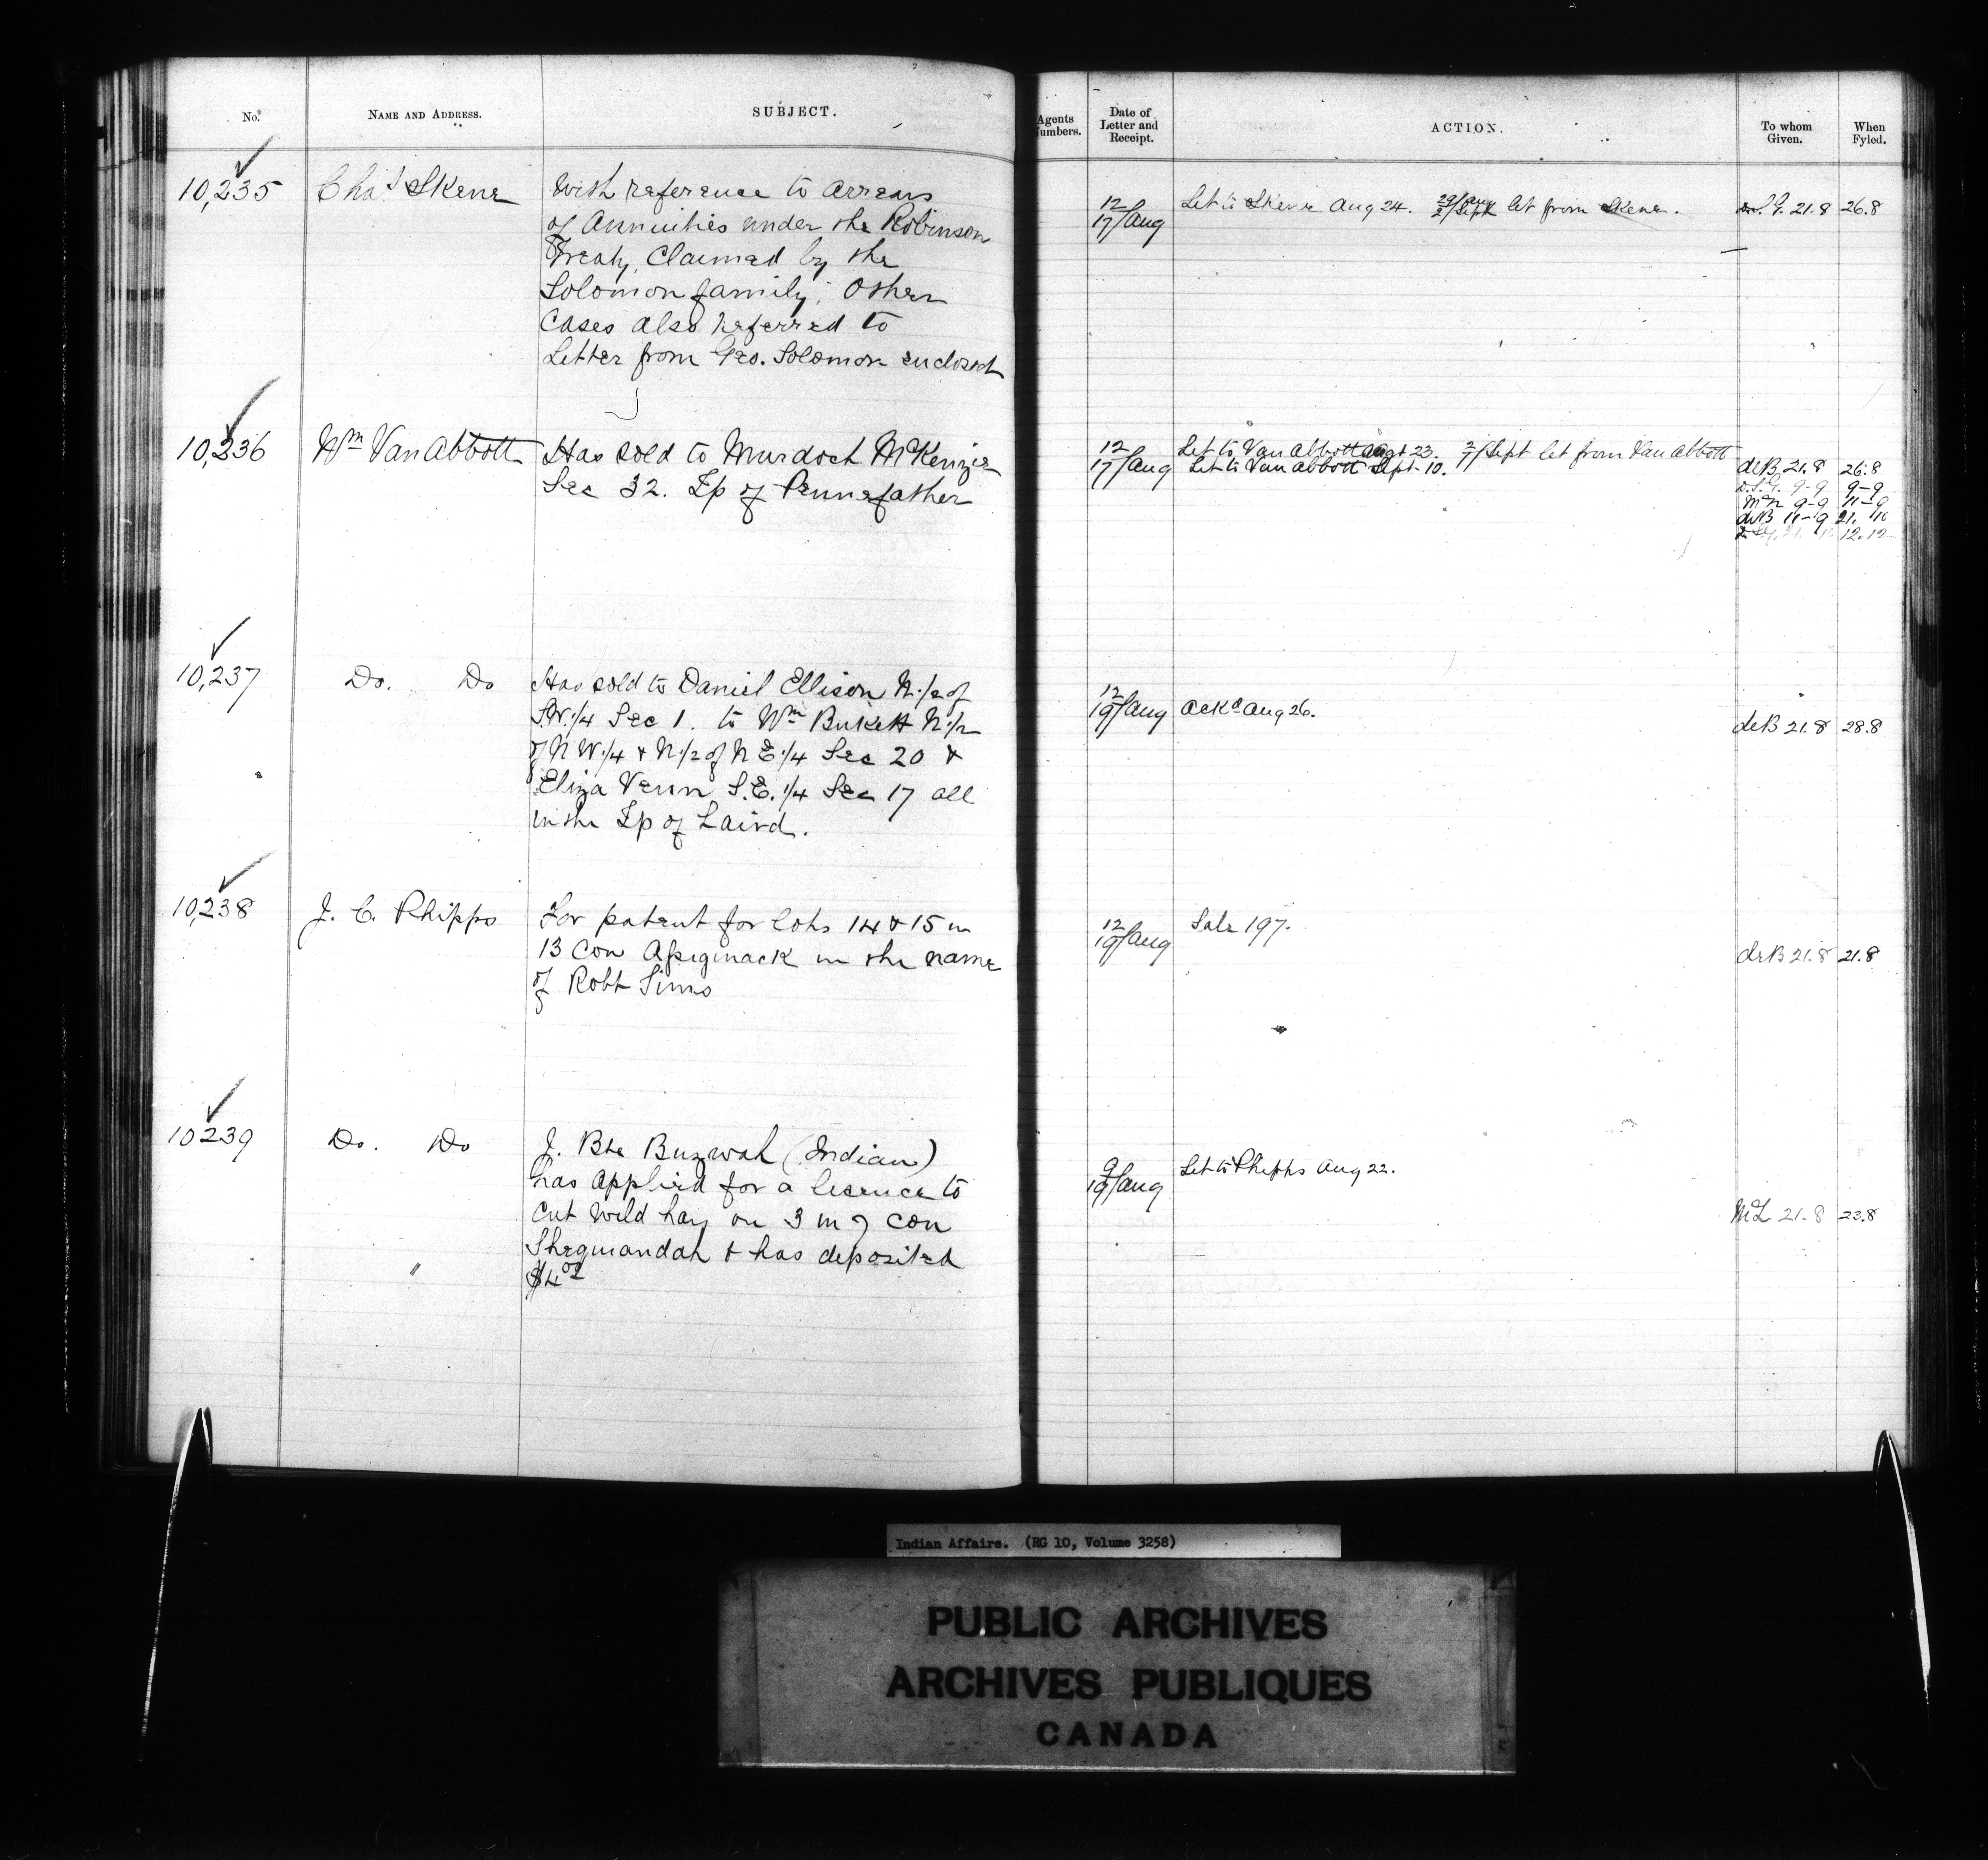 No.
NAME AND ADDRESS.
SUBJECT.
Agents Numbers.
Date of Letter and Receipt.
ACTION.
To whom Given.
When Fyled.
10,235
Chas Skene
With reference to arrears
of Annuities under the Robinson
Treaty, Claimed by the
Solomon family; Other
Cases also referred to
Letter from Geo. Solomon enclosed
12/17 Aug
Let to Skene Aug 24. 29/Aug 2/Sept let from Skene.
21.8
26.8
10,236
Wm Van Abbott
Has sold to Murdoch McKenzie
Sec 32. Tp of Pennefather
12/17 Aug
Let to Van Abbott Augt 23. 2/7 Sept let from Van Abbott
Let to Van Abbott Sept 10.
deB 21.8 26.8
9-9 9-9
9-9 11-9
deB 11-9 21.
12.12
10,237
Do. Do
Has sold to Daniel Ellison N.1/2 of
S.W.1/4 Sec 1. to Wm Bukett N.1/2
of N W.1/4 & N.1/2 of N E.1/4 Sec 20 &
Eliza Venn S.E. 1/4 Sec 17 all
in the Tp of Laird.
12/19 Aug
Ackd Aug 26.
deB 21.8
28.8
10,238
J. C. Phipps
For patent for lots 14 & 15 in
13 Con Assiginack in the name
of Robt Sims
12/19 Aug
Sale 197.
deB 21.8
21.8
10239
Do. Do
J. Bte Buzwah (Indian)
has applied for a licence to
cut wild hay on 3 in 7 con
Sheguiandah & has deposited
$4
9/19 Aug
Let to Phipps Aug 22.
McL 21.8
23.8
Indian Affairs. (RG 10, Volume 3258)
PUBLIC ARCHIVES
ARCHIVES PUBLIQUES
CANADA